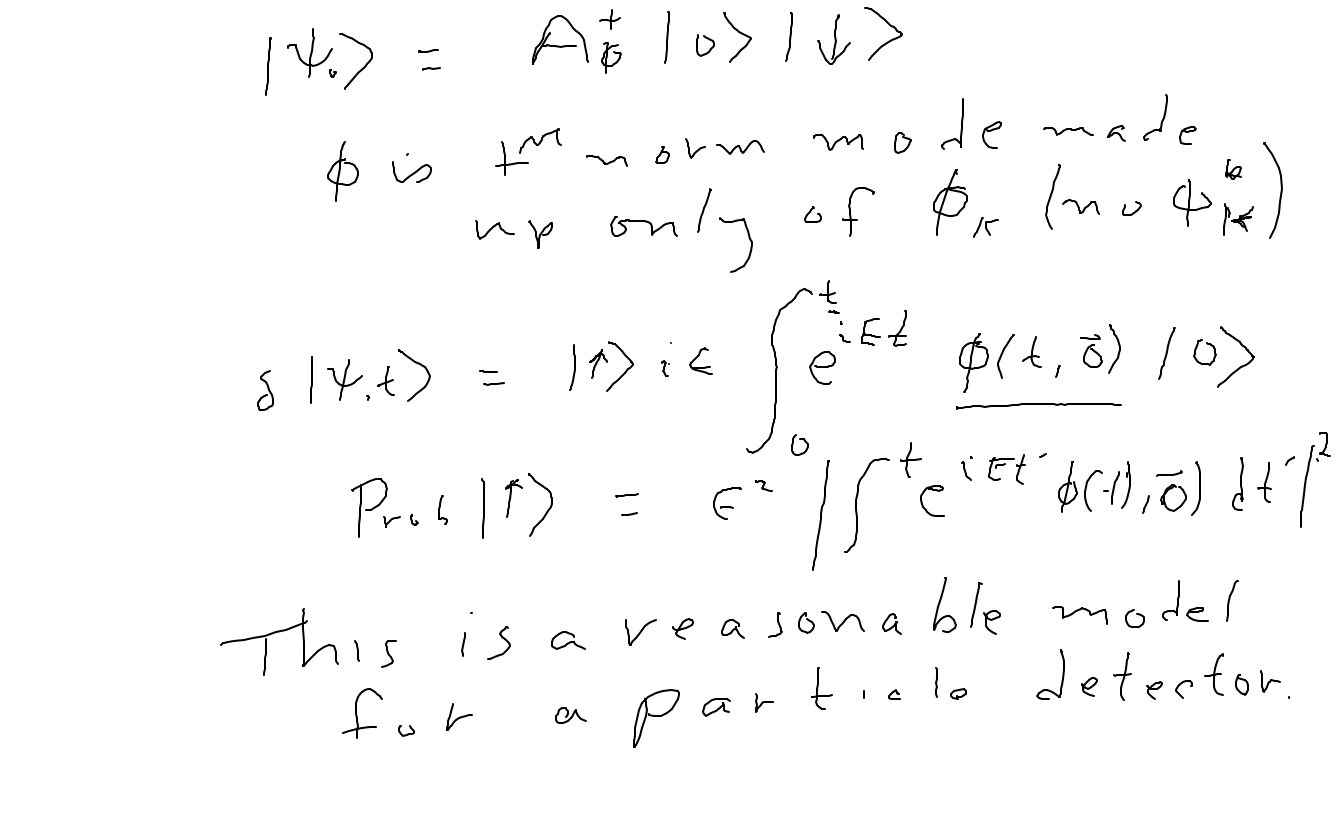 |Ψ₀⟩ = A†_φ |0⟩ |↓⟩
φ is +ve norm mode made
up only of φ_k (no φ*_k)
δ|Ψ,t⟩ = |↑⟩ iϵ ∫₀ᵗ e^{iEt} φ(t, 0⃗) |0⟩
Prob |↑⟩ = ϵ² |∫ᵗ e^{iEt′} φ(t′, 0⃗) dt′|²
This is a reasonable model
for a particle detector.